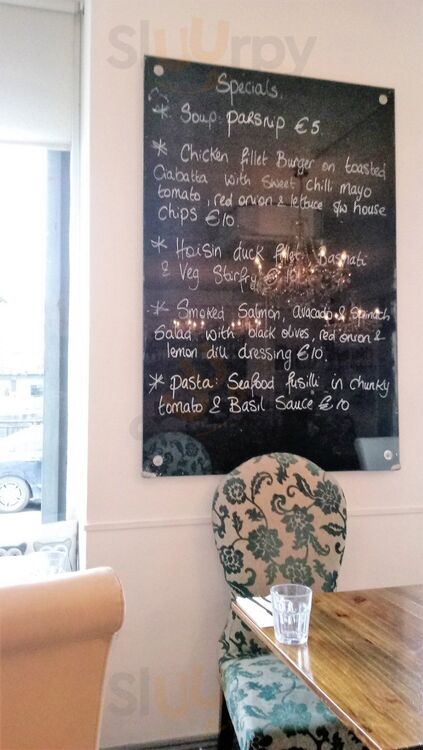 Slurrpy
Specials.
* Soup: Parsnip €5.
* Chicken fillet Burger on toasted
Ciabatta with sweet chilli mayo
tomato, red onion & lettuce s/w house
chips €10.
* Hoisin duck fillet Basmati
& Veg Stirfry €10
* Smoked Salmon, avacado & Spinach
Salad with black olives, red onion &
lemon dill dressing €10.
* Pasta: Seafood fusilli in chunky
tomato & Basil Sauce €10